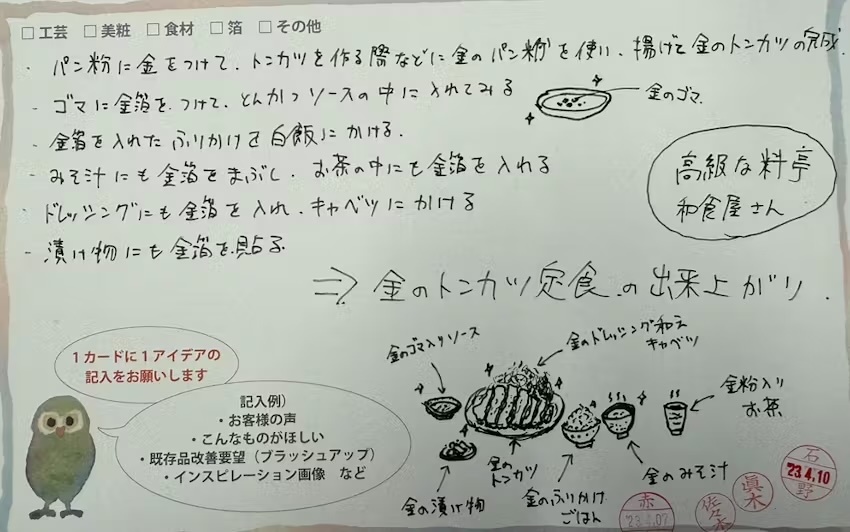 □ 工芸 □ 美粧 □ 食材 □ 箔 □ その他
・パン粉に金をつけて、トンカツを作る際などに金のパン粉を使い、揚げて金のトンカツの完成.
- ゴマに金箔をつけて、とんかつソースの中に入れてみる
金のゴマ.
- 金箔を入れたふりかけを白飯にかける.
- みそ汁にも金箔をまぶし、お茶の中にも金箔を入れる
・ドレッシングにも金箔を入れ、キャベツにかける
- 漬け物にも金箔を貼る
高級な料亭
和食屋さん
⇒ 金のトンカツ定食の出来上がり.
1カードに1アイデアの
記入をお願いします
記入例)
・お客様の声
・こんなものがほしい
・既存品改善要望(ブラッシュアップ)
・インスピレーション画像 など
金のゴマ入りソース
金のドレッシング和え
キャベツ
金粉入り
お茶
金の漬け物
金の
トンカツ
金のふりかけ
ごはん
金のみそ汁
赤
23.4.07
佐々木
眞木
石
23.4.10
野